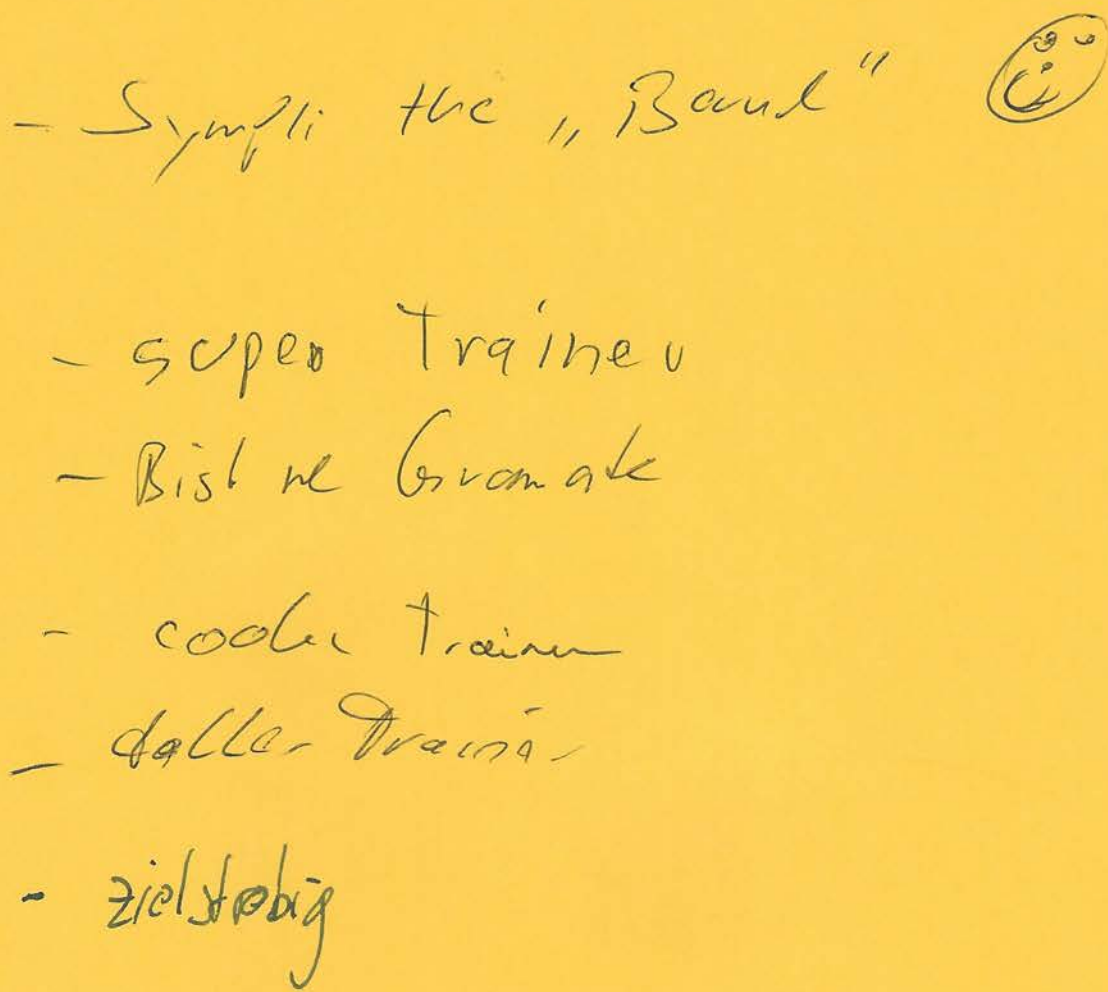 - Sympli the „Band"
- super Trainer
- Bist ne Granate
- cooler Trainer
- toller Trainer
- zielstrebig